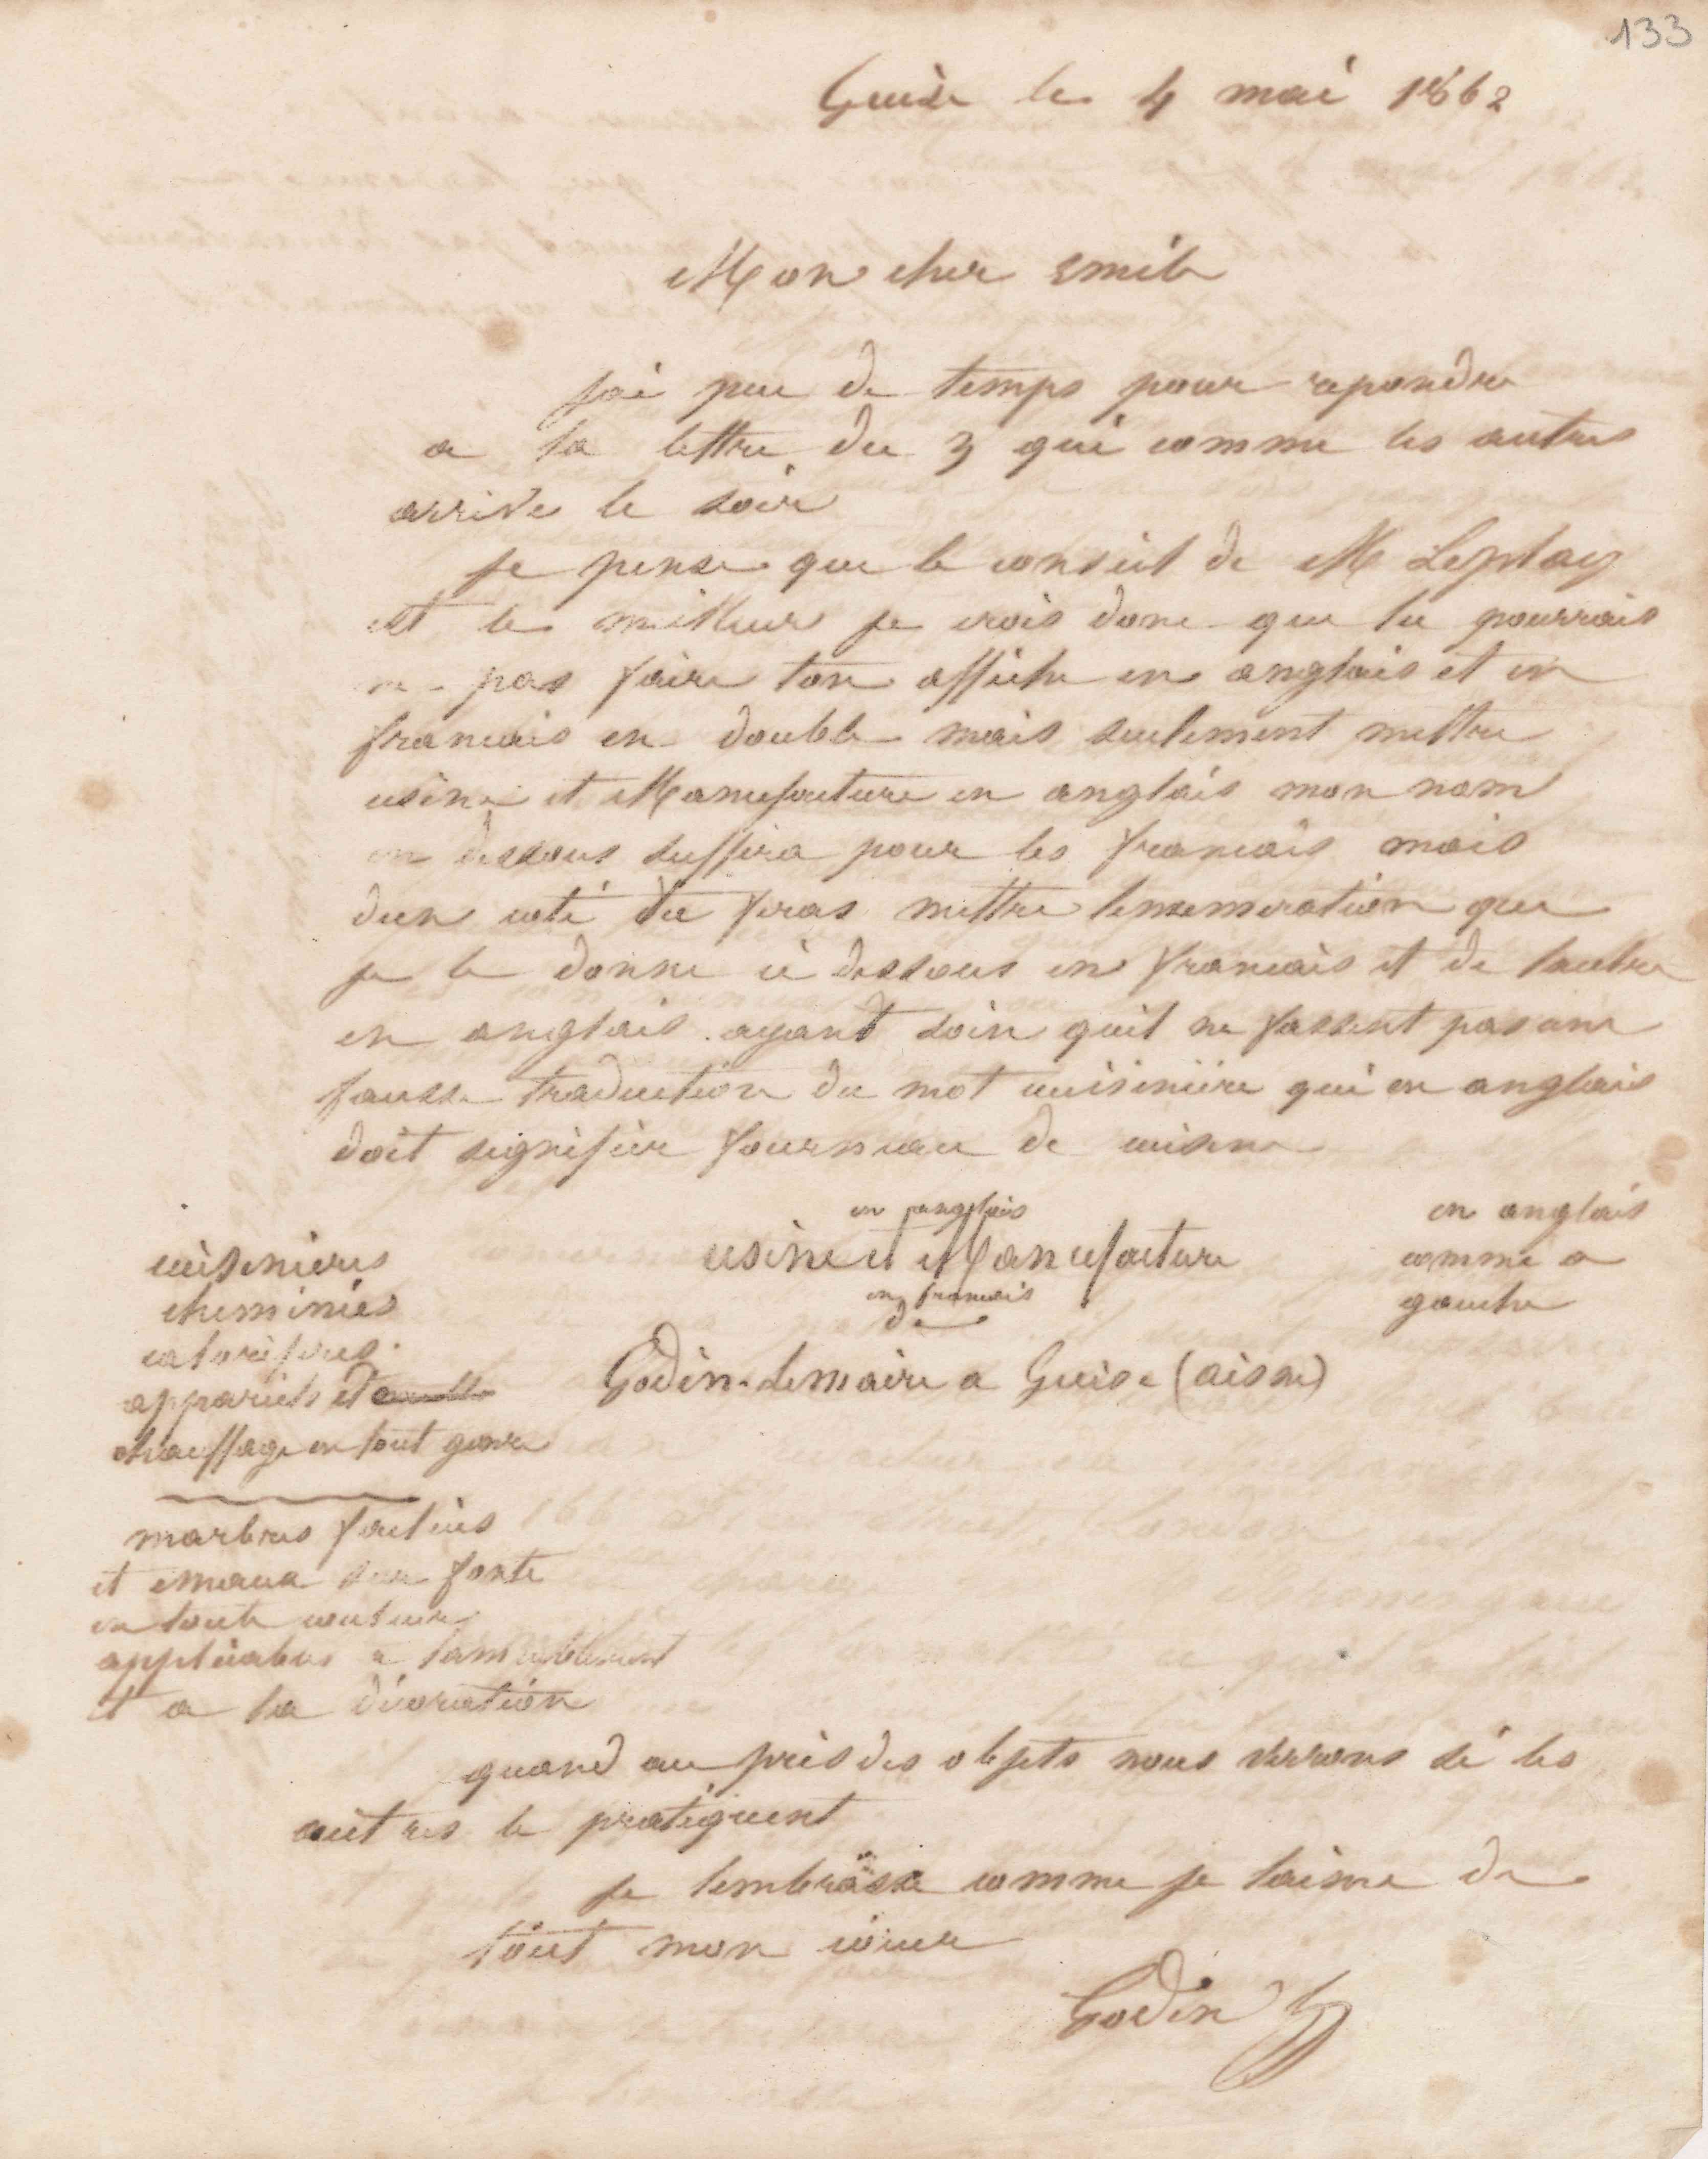 133
Guise le 4 mai 1862
Mon cher Emile
J'ai peu de temps pour repondre
a ta lettre du 3 qui comme les autres
arrive le soir
je pense que le conseil de M Leplay
est le meilleur je crois donc que tu pourrais
ne pas faire ton affiche en anglais et en
francais en double mais seulement mettre
usine et Manufacture en anglais mon nom
en dessous suffira pour les francais mais
dun coté tu feras mettre lenumeration que
je te donne ci dessous en francais et de lautre
en anglais ayant soin quil ne fassent pas une
fausse traduction du mot cuisinière qui en anglais
doit signifier fourneau de cuisine
en anglais
usine et Manufacture
en francais
de
Godin-Lemaire a Guise (aisne)
en anglais
comme a
gauche
cuisinieres
cheminées
calorifères
appareils de
chauffage en tout genre
marbres factices
et emaux sur fonte
en toute couleur
applicables a lameublement
et a la décoration
quand au prix des objets nous verrons si les
autres le pratiquent
je tembrasse comme je taime de
tout mon cœur
Godin